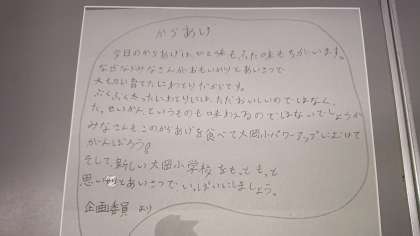 からあげ
今日のからあげは、ひと味もふた味もちがいます。
なぜならみなさんがおもいやりとあいさつで
大切に育てたにわとりだからです。
ぶくぶく太ったにわとりには、ただおいしいのではなく、
た。せいかん、というものも味わえるのではないでしょうか
みなさんもこのからあげを食べて大岡小パワーアップにむけて
がんばろう!
そして、新しい大岡小学校をもっともっと
思いやりとあいさつでいっぱいにしましょう。
企画委員より